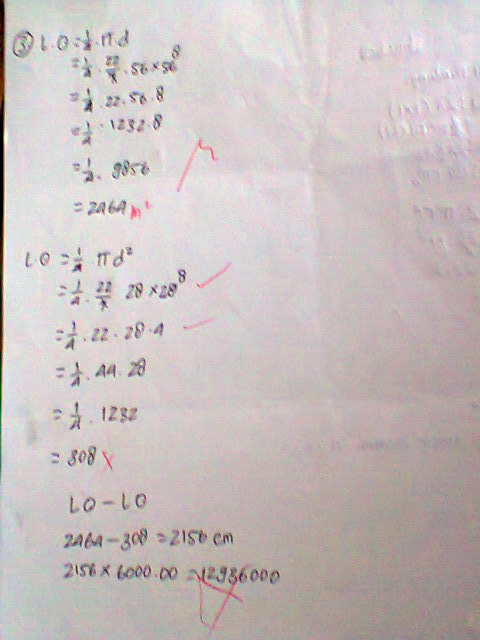 ③ LO = 1/4 . π d
= 1/4 . 22/7 . 56 × 56 8
= 1/4 . 22 . 56 . 8
= 1/4 . 1232 . 8
= 1/4 . 9856
= 2464 m²
LO = 1/4 π d²
= 1/4 . 22/7 28 × 28 8
= 1/4 . 22 . 28 . 4
= 1/4 . 44 . 28
= 1/4 . 1232
= 308
LO - LO
2464 - 308 = 2156 cm
2156 × 6000.00 = 12936000